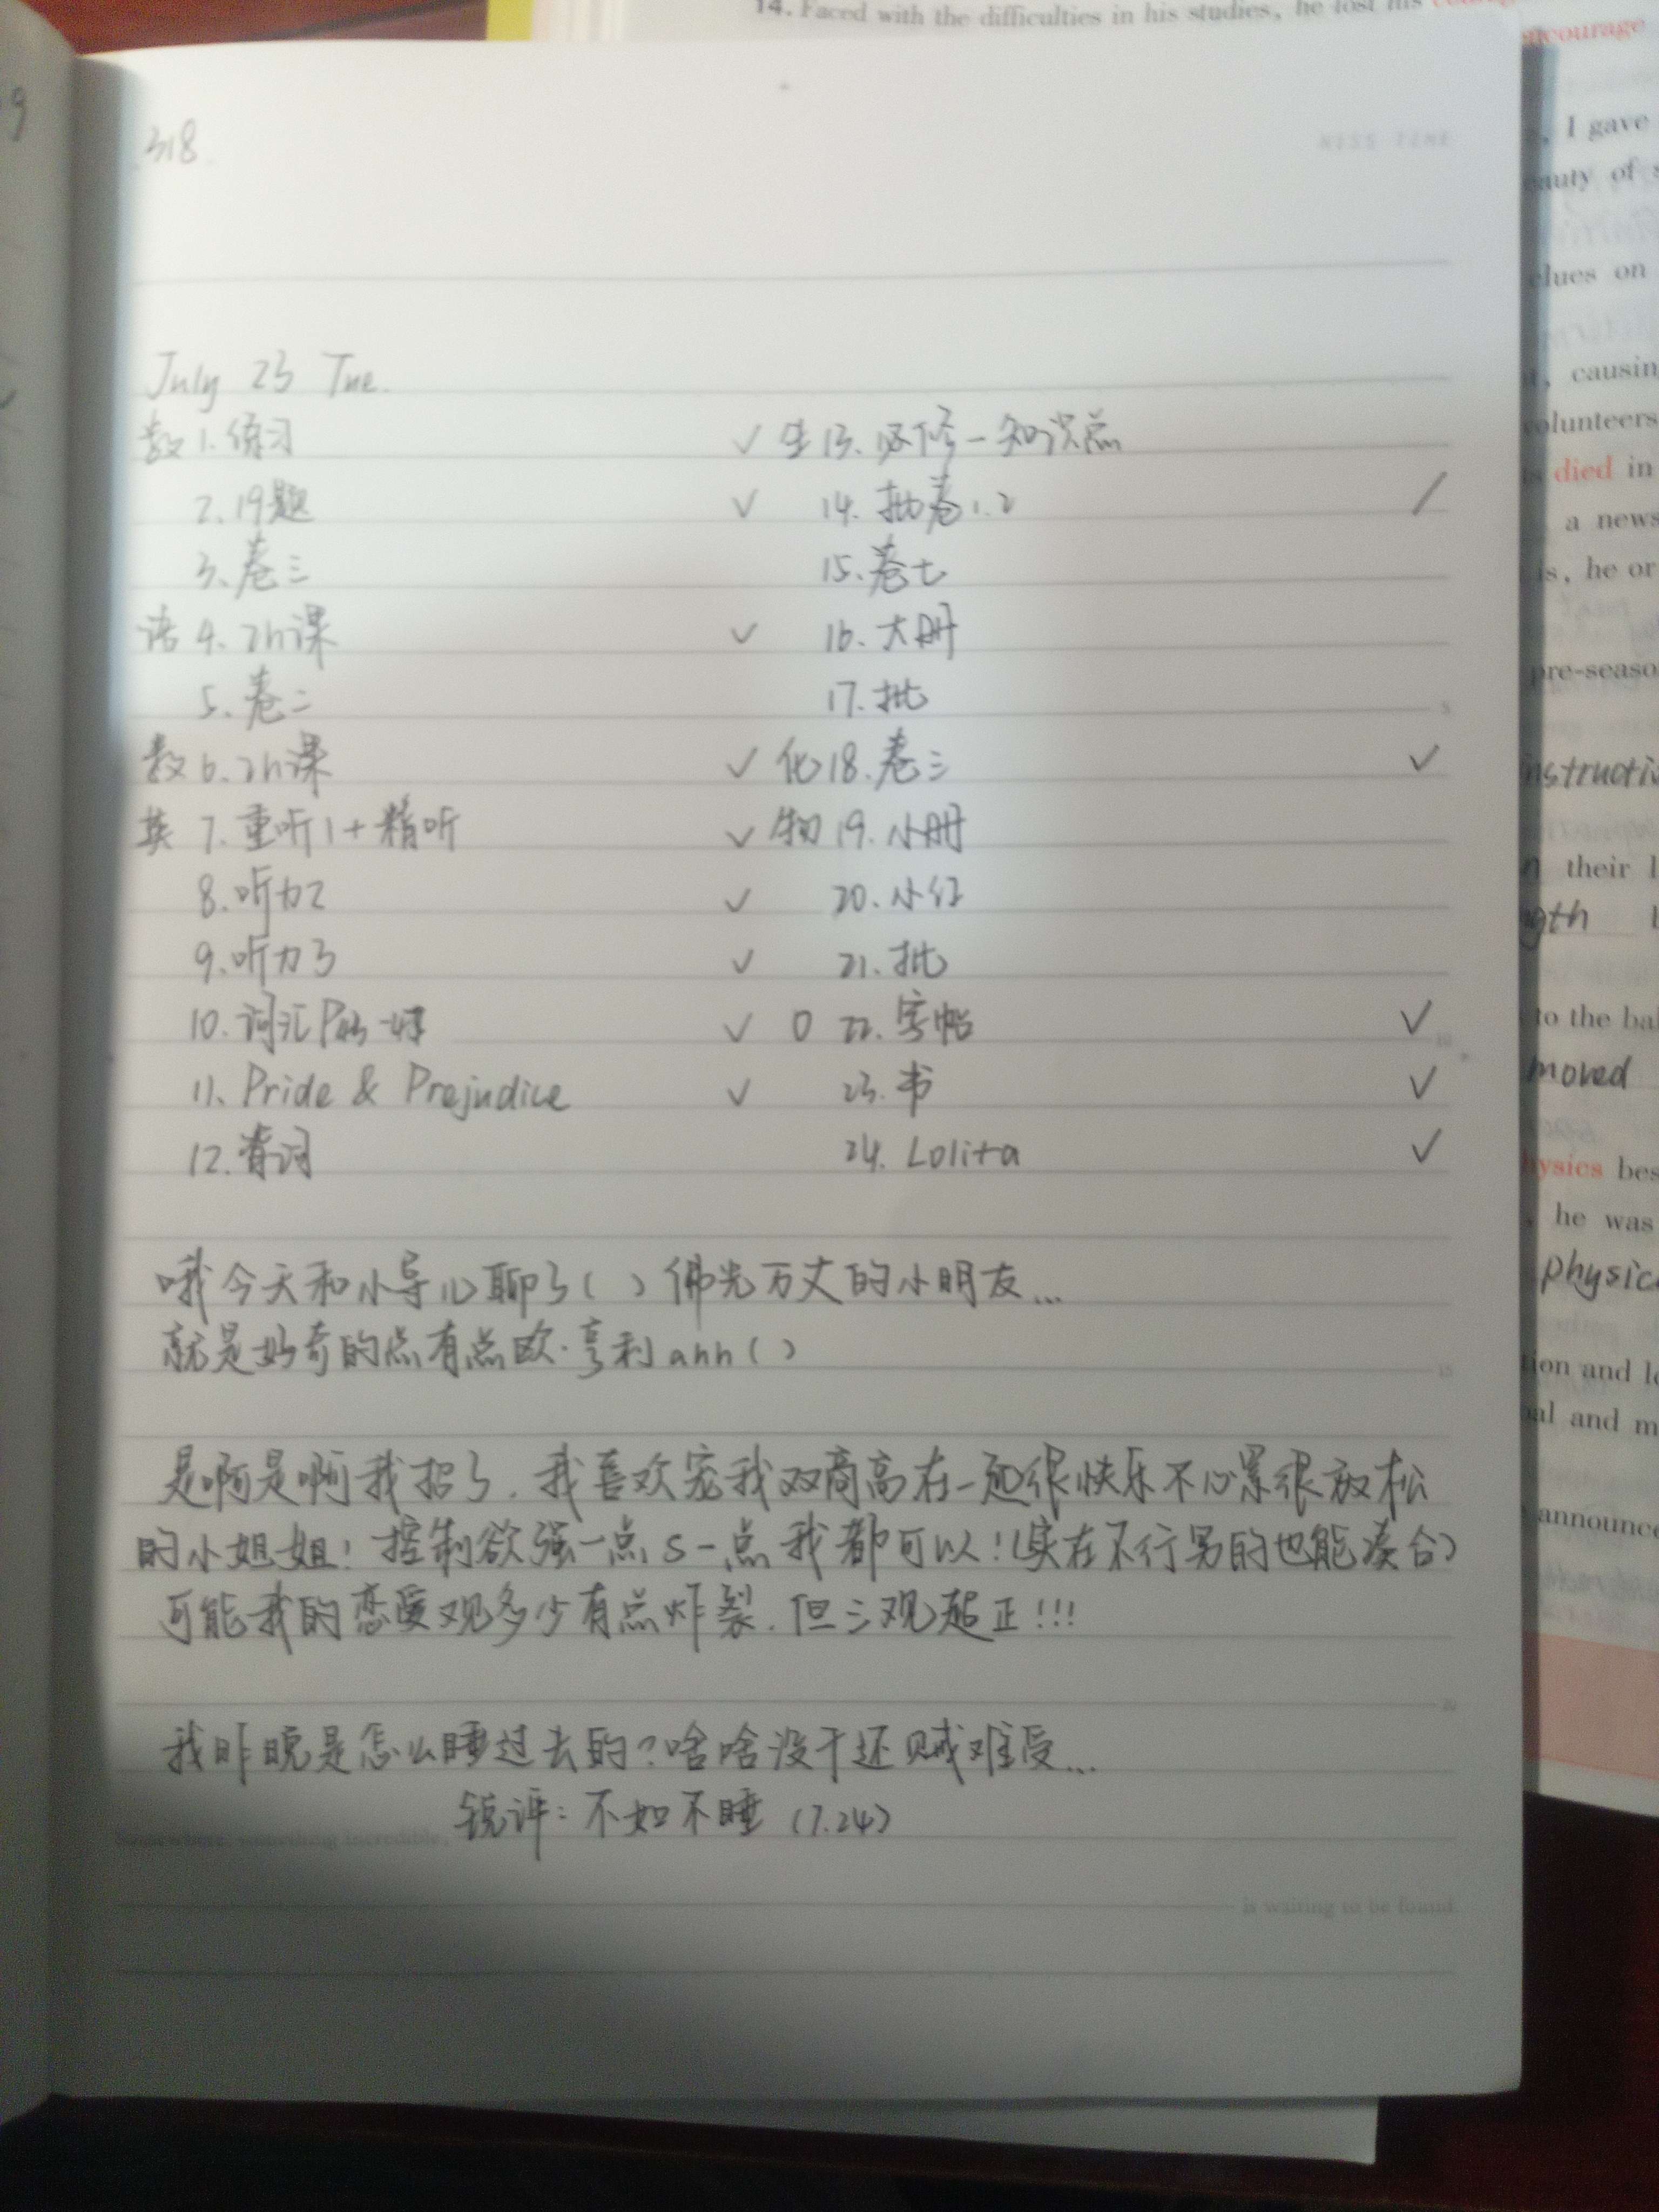 318.
July 23 Tue.
数 1. 练习 ✓
2. 19题 ✓
3. 卷三
语 4. 2h课 ✓
5. 卷二
数 6. 2h课 ✓
英 7. 重听1+精听 ✓
8. 听力2 ✓
9. 听力3 ✓
10. 词汇 ✓
11. Pride & Prejudice ✓
12. 背词
生 13. 必修一知识点
14. 批卷1.2 /
15. 卷七
16. 大册
17. 批
化 18. 卷三 ✓
物 19. 小册
20. 小红
21. 批
0 22. 字帖 ✓
23. 书 ✓
24. Lolita ✓
哦今天和小导儿聊了()佛光万丈的小朋友...
就是好奇的点有点欧·亨利ahh()
是啊是啊我招了.我喜欢宠我双商高在一起很快乐不心累很放松
的小姐姐!控制欲强一点s一点我都可以!(实在不行男的也能凑合)
可能我的恋爱观多少有点炸裂.但三观超正!!!
我昨晚是怎么睡过去的?啥啥没干还贼难受...
锐评:不如不睡(7.24)
is waiting to be found.
14. Faced with the difficulties in his studies, he lost his
encourage
, I gave
clues on
, causin
volunteers
died in
a news
is, he or
pre-seaso
their l
to the bal
moved
physics bes
, he was
physic
tion and l
and m
announce